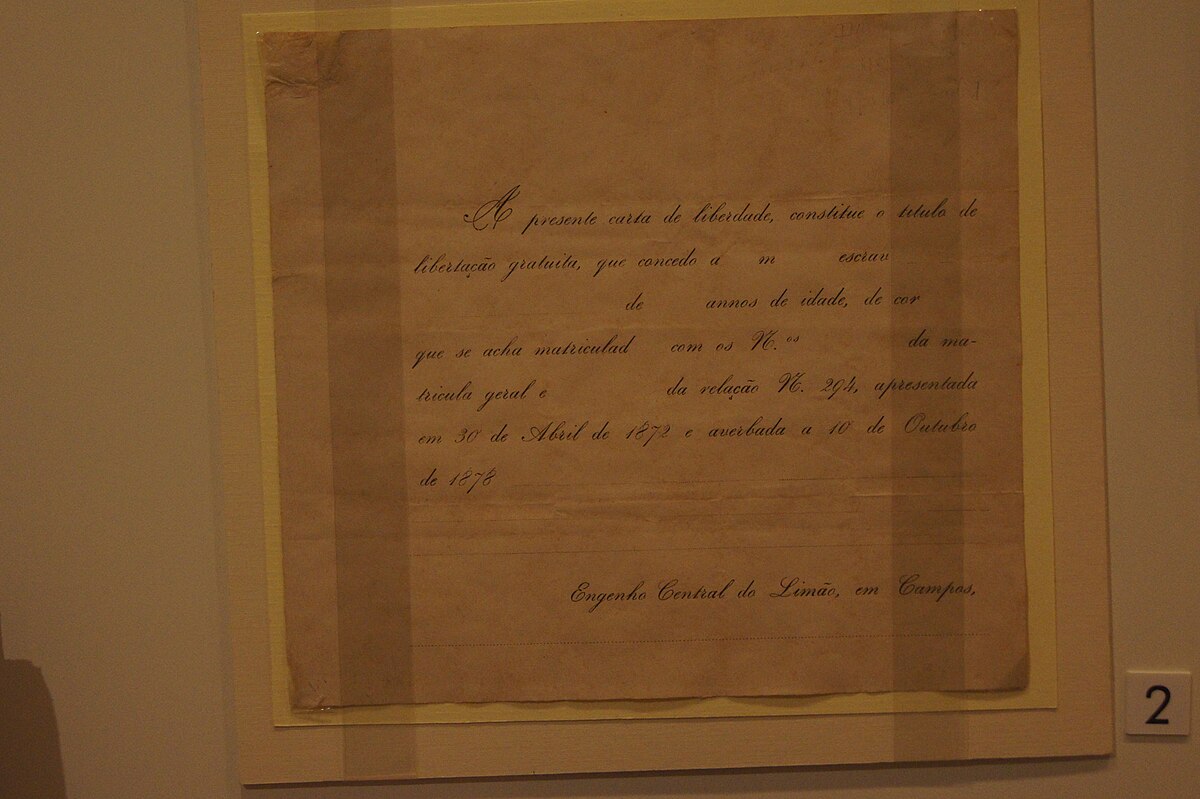 A presente carta de liberdade, constitue o titulo de
libertação gratuita, que concedo á m escrav
de annos de idade, de cor
que se acha matriculad com os N.os da ma-
tricula geral e da relação N. 294, apresentada
em 30 de Abril de 1872 e averbada a 10 de Outubro
de 1878
Engenho Central do Limão, em Campos,
2